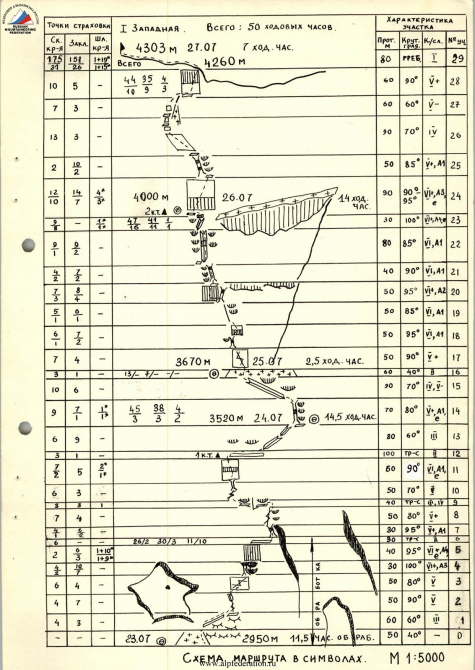 RUSSIAN MOUNTAINEERING FEDERATION
Точки страховки
I Западная. Всего: 50 ходовых часов.
Характеристика участка
Ск. кр-я Закл. Шл. кр-я
Прот. м Крут. град. К/сл. № уч.
4303 м 27.07 7 ход. час.
175 151
37 26
Всего 4260 м 80 ГРЕБ. I 29
44 35 4
10 9 3
10 5 – 60 90° V+ 28
7 3 – 60 60° V- 27
13 3 – 90 70° IV 26
2 10/2 – 50 85° V+, A1 25
12/10 14/7
4000 м 26.07 14 ход. час.
90 90° 95° 24
2 к.т.
47 41 1
16 11 1
30 100° 23
9/1 0/2 – 80 85° VI, A1 22
4/2 7/2 – 40 90° VI, A1 21
7/3 8/4 – 50 95° VI, A2 20
5/1 6/1 – 50 85° VI, A1 19
6/1 7/2 – 50 95° VI, A1 18
7 4 – 3670 м 25.07 2,5 ход. час. 50 90° V+ 17
3 1 – 13/- 7/- -/- 60 40° II 16
10 6 – 90 70° IV, V- 15
9 7/1
45 38 4
3 3 2
3520 м 24.07 14,5 ход. час.
70 80° 14
6 9 – 80 60° III 13
3 1 – 1 к.т. 100 тр-с II 12
7/2 5 50 90° 11
6 3 – 50 70° II 10
3 3 – 40 тр-с 9
7 4 – 50 80° V+ 8
30 95° 7
6 – – 26/2 30/3 11/10 6
2 6/3 1+10° 1+9° 40 95° 5
4/2 10/7 – 30 100° VI+, A3 4
6 5 – 50 80° V 3
4 7 – 50 90° V 2
4 3 – 60 60° III 1
ОБРАБОТКА
– – – 23.07 2950 м 11,5 ч. ОБРАБ. 50 40° – 0
Схема маршрута в символах. М 1:5000
www.alpfederation.ru